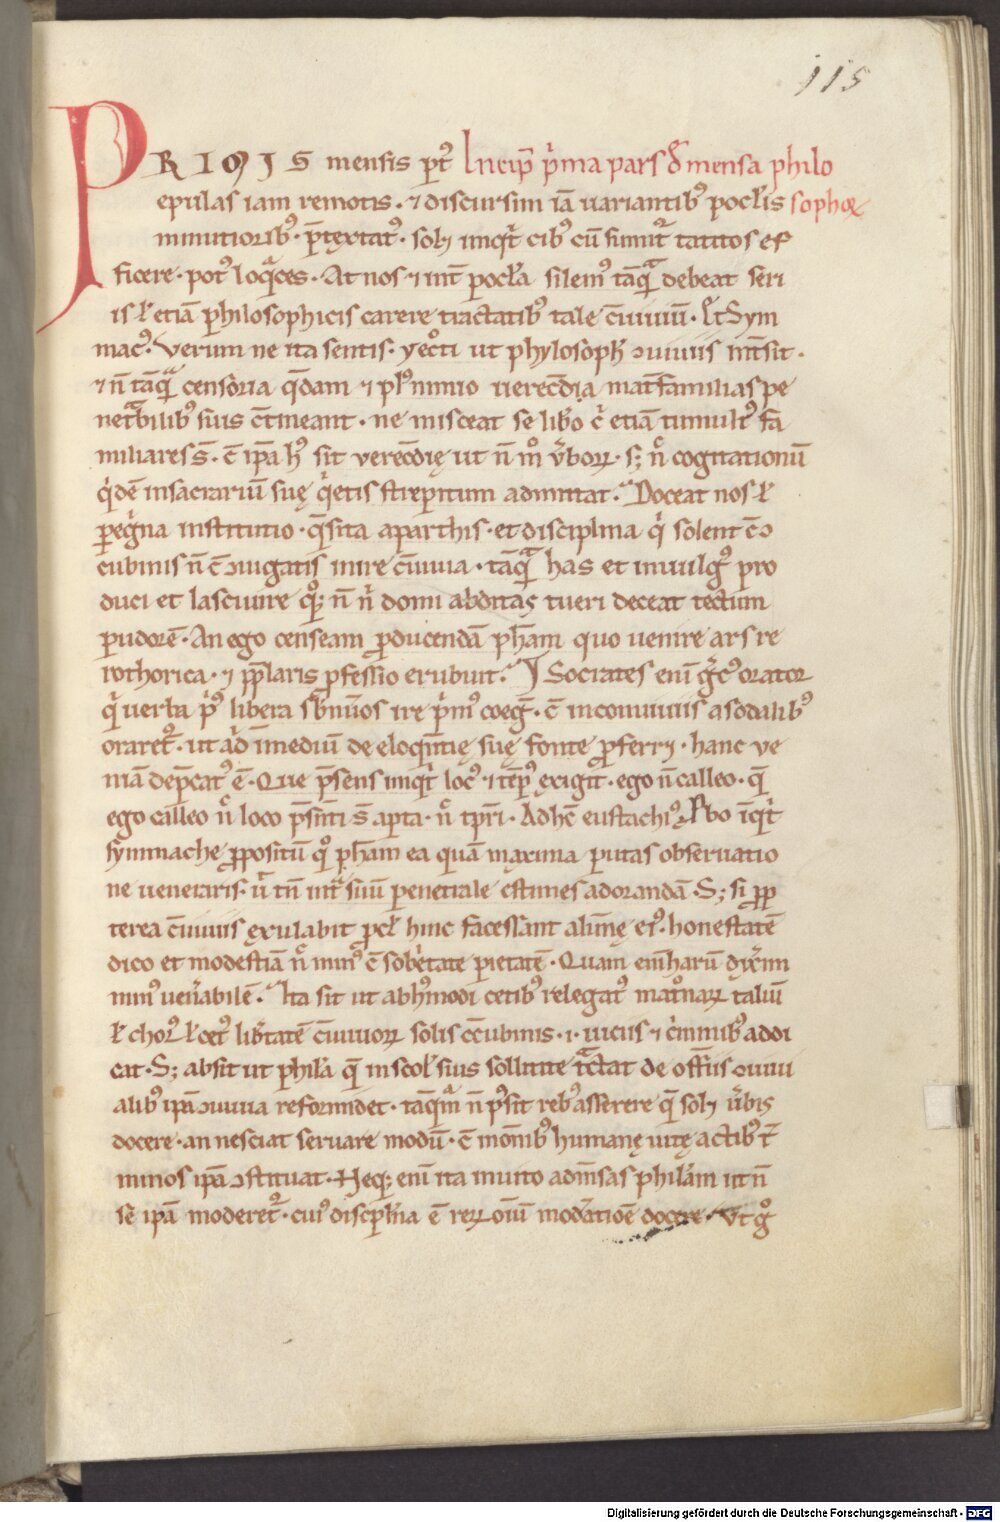 115
PRIMIS mensis pt̄ Incip̄ p̄ma pars d̄ mensa philo
epulas iam remotis · ⁊ discursim iā uariantib᷒ pocl̄is sophoꝝ
minutiorib᷒ · p̄textat᷒ · solꝫ inqt̄ cib᷒ cū sumit᷒ tacitos ef
ficere · pot᷒ loq̄ces · At nos ⁊ int̄ pocl̄a silem᷒ tāq̄ debeat seri
is ł etiā philosophicis carere tractatib᷒ tale c̄uiuiū · Et Sym
mac᷒ · Verum ne ita sentis · ut phylosoph̄ ꝯuiuiis int̄sit ·
⁊ n̄ tāq̄ censoria q̄dam ⁊ pl᷒ nimio uerec̄dia mat̄familias pe
net̄bilib᷒ suis c̄tineant · ne misceat se lib̄o c̄ etiā tumult᷒ fa
miliares s̄ · c̄ ip̄a h᷒ sit verec̄dię ut n̄ m̊ v̄boꝝ · sꝫ n̊ cogitationū
q̇dē in sacrariū suę q̇etis strepitum admittat · Doceat nos ł
pegr̄na institutio · q̄sita a parthis · et disciplina q̇ solent c̄ ꝯ
cubinis n̄ c̄ ꝯiugatis inire c̄uiuia · tāq̄ has et in uulg᷒ pro
duci et lasciuire q̊ꝫ n̄ n̄ domi abditas tueri deceat tectum
pudorē · An ego censeam ꝓducendā ph̄am quo uenire ars re
rothorica · ⁊ pp̄laris ꝓfessio erubuit · Socrates eni ḡc᷒ orator
q̇ uerba p̓᷒ libera sb̄ nūos ire p̓m᷒ coeḡ · c̄ in conuiuiis a sodalib᷒
oraret᷒ · ut ad īmediū de eloq̄ntię suę fonte ꝓferr · hanc ve
niā dep̄cat᷒ ē · Que p̄sens inqt̄ loc᷒ ⁊ tēp᷒ exigit · ego n̄ calleo · q̄
ego calleo n̊ loco p̄sn̄ti s̄ apta · n̊ tp̄ri · Ad hec̄ eustachi᷒ īqt̄
symmache ꝓpositū q̊ ph̄am ea quam maxima putas obseruatio
ne ueneraris · u̇ tn̄ int̄ suū penetrale estimes adorandā · Sꝫ si ꝓp
terea c̄uiuiis exulabit ꝓcl̄ hinc facessant alūnę ei᷒ · honestatē
dico et modestiā n̊ min᷒ c̄ sobrietate pietatē · Quam eni harū dix̄im
min᷒ uen̄abilē · Ita sit ut ab h᷒modi cetib᷒ relegat᷒ mat̊naꝝ taliū
ł chor᷒ ł cet᷒ lib̄tatē c̄uiuioꝝ solis c̄cubinis · i · uiciis ⁊ c̓minib᷒ addi
cat · Sꝫ absit ut phil̄a q̄ in scol̄ suis sollicite t̄ctat de off̄iis ꝯuiui
alib᷒ ipā ꝯuiuia reformidet · tāq̄m n̄ p̓sit reb᷒ asserere q̄ solꝫ v̄bis
docere · an nesciat seruare modū · c̄ mon̄ib᷒ humanę uitę actib᷒ t̄
minos ipā ꝯstituat · Neqꝫ eni ita inuito ad mn̄sas phil̄am ut n̄
se ipā moderet᷒ · cui᷒ discipl̄na ē reꝝ oīū mod̄atioē docere · Vt g̊